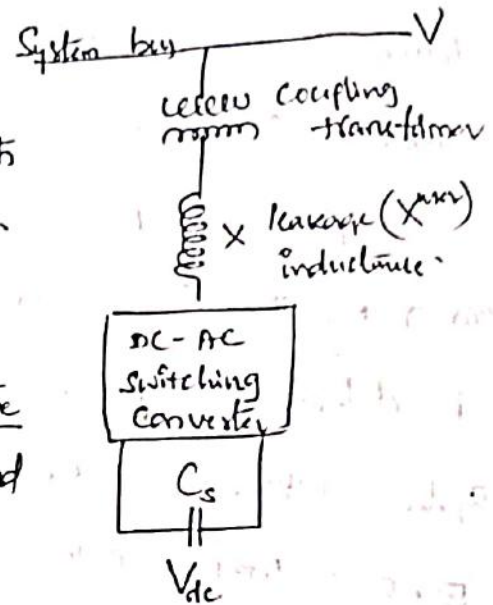 System bus V
coupling
transformer
X leakage
inductance.
DC-AC
Switching
Converter
Cs
Vdc